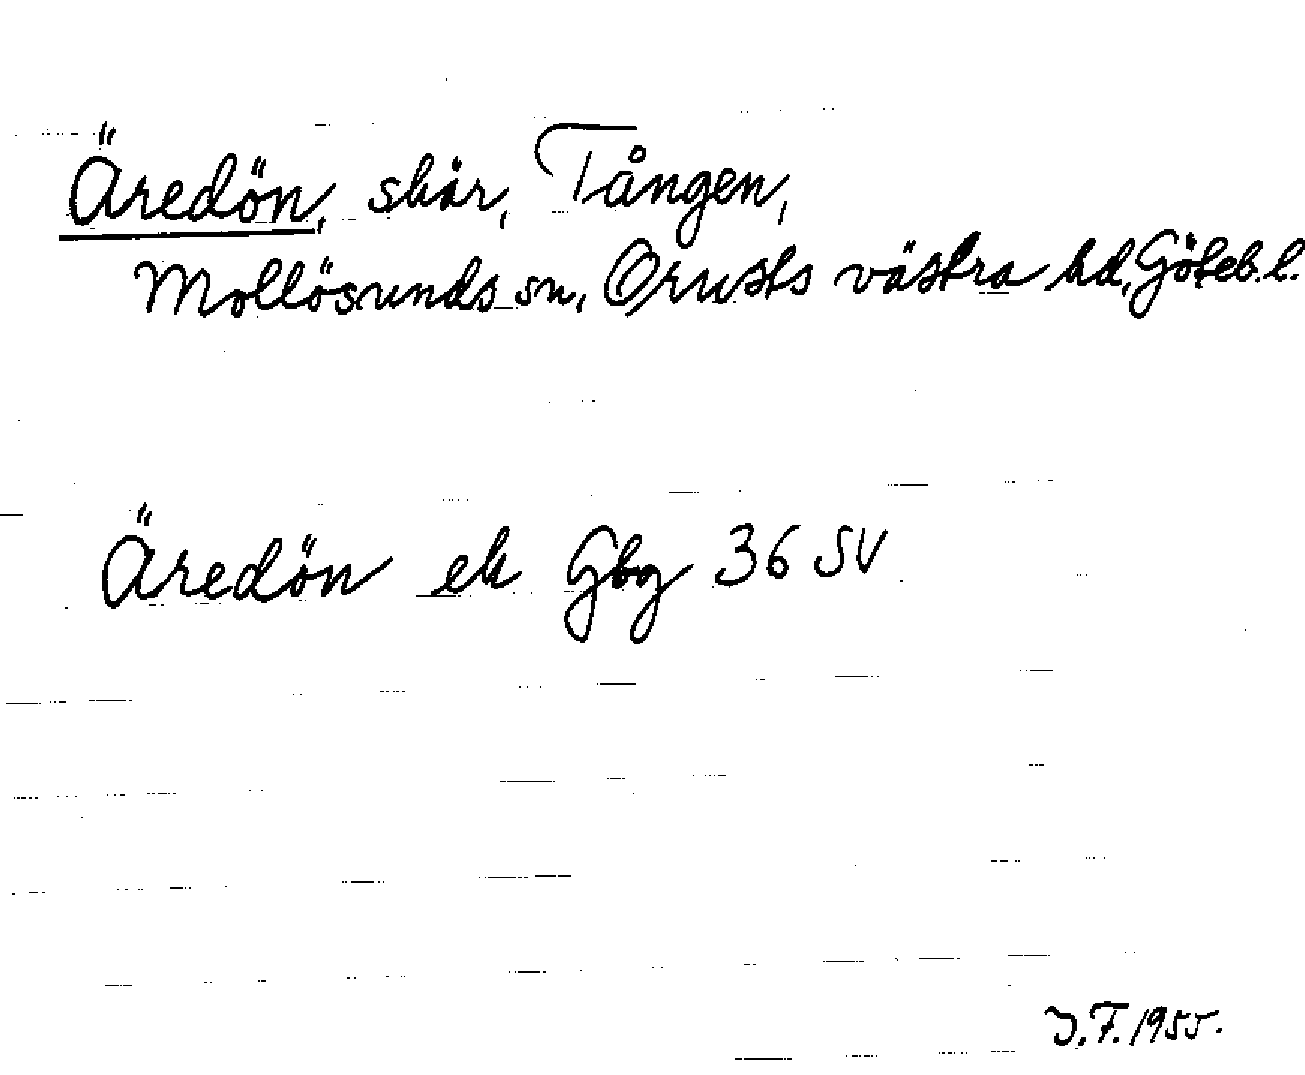 Äredön, skär, Tången,
Mollösunds sn, Orusts västra hd, Göteb. l.
Äredön ek Gbg 36 SV
J.F. 1955.